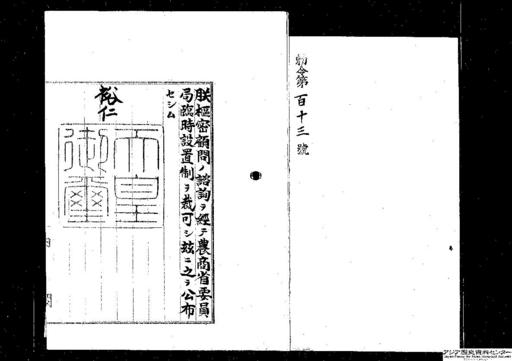 勅令第百十三號
朕樞密顧問ノ諮詢ヲ經テ農商省委員
局臨時設置制ヲ裁可シ玆ニ之ヲ公布
セシム
裕仁
天皇御璽
内閣
アジア歴史資料センター